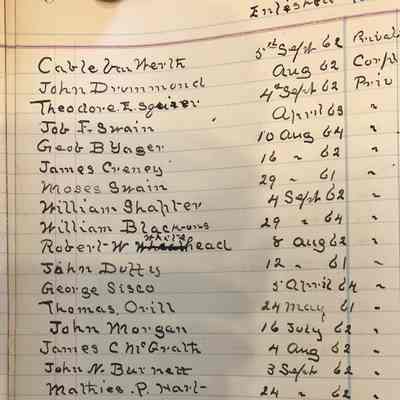 Enlisted
Cable Van Werth 5th Sept 62 Privat
John Drummond Aug 62 Corpl
Theodore E. 4th Sept 62 Priv
Job F. Swain April 63 "
Geob B Yager 10 Aug 64 "
James Creney 16 " 62 "
Moses Swain 29 " 61 "
William Shafter 4 Sept 62 "
William Blackmore 29 " 64 "
Robert W Whitehead 8 Aug 62 "
John Duffy 12 " 61 "
George Sisco 5 April 64 "
Thomas Orill 24 May 61 "
John Morgan 16 July 62 "
James C McGrath 4 Aug 62 "
John N. Burnett 3 Sept 62 "
Mathies. P. 24 " 62 "